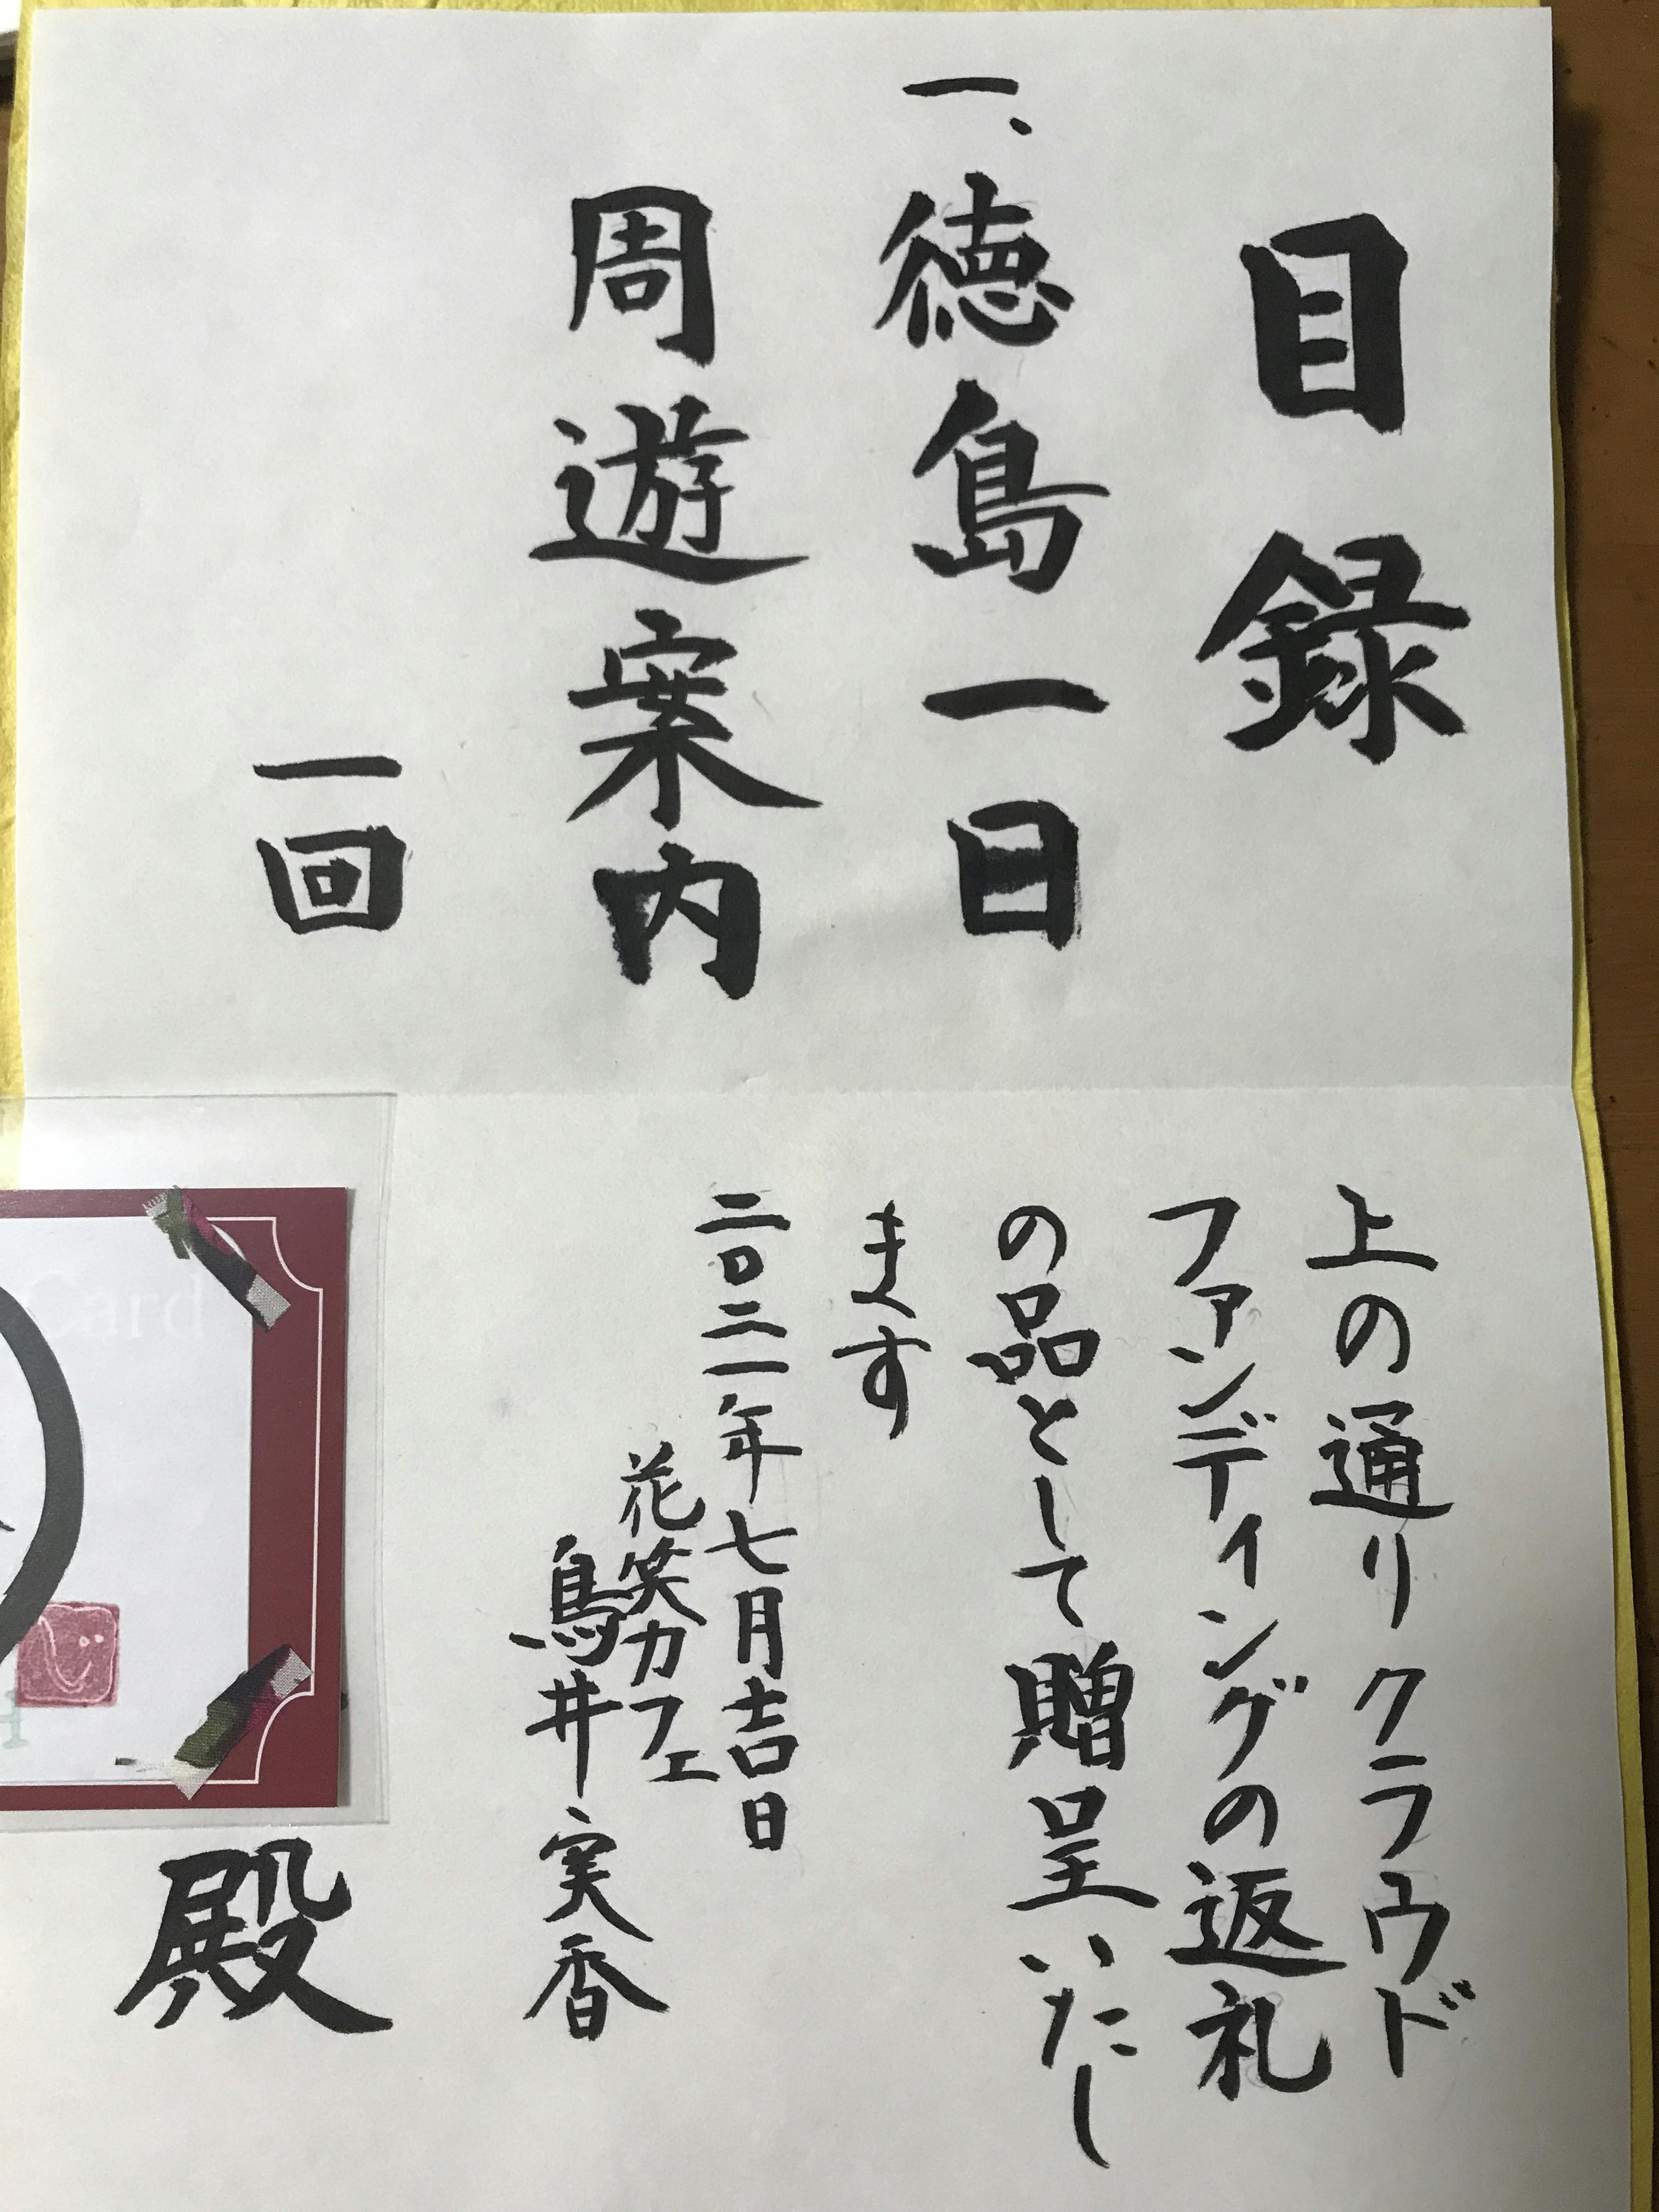 目録
一、徳島一日
周遊案内
一回
上の通りクラウド
ファンディングの返礼
の品として贈呈いたし
ます
二〇二一年七月吉日
花笑カフェ
鳥井実香
殿
Card